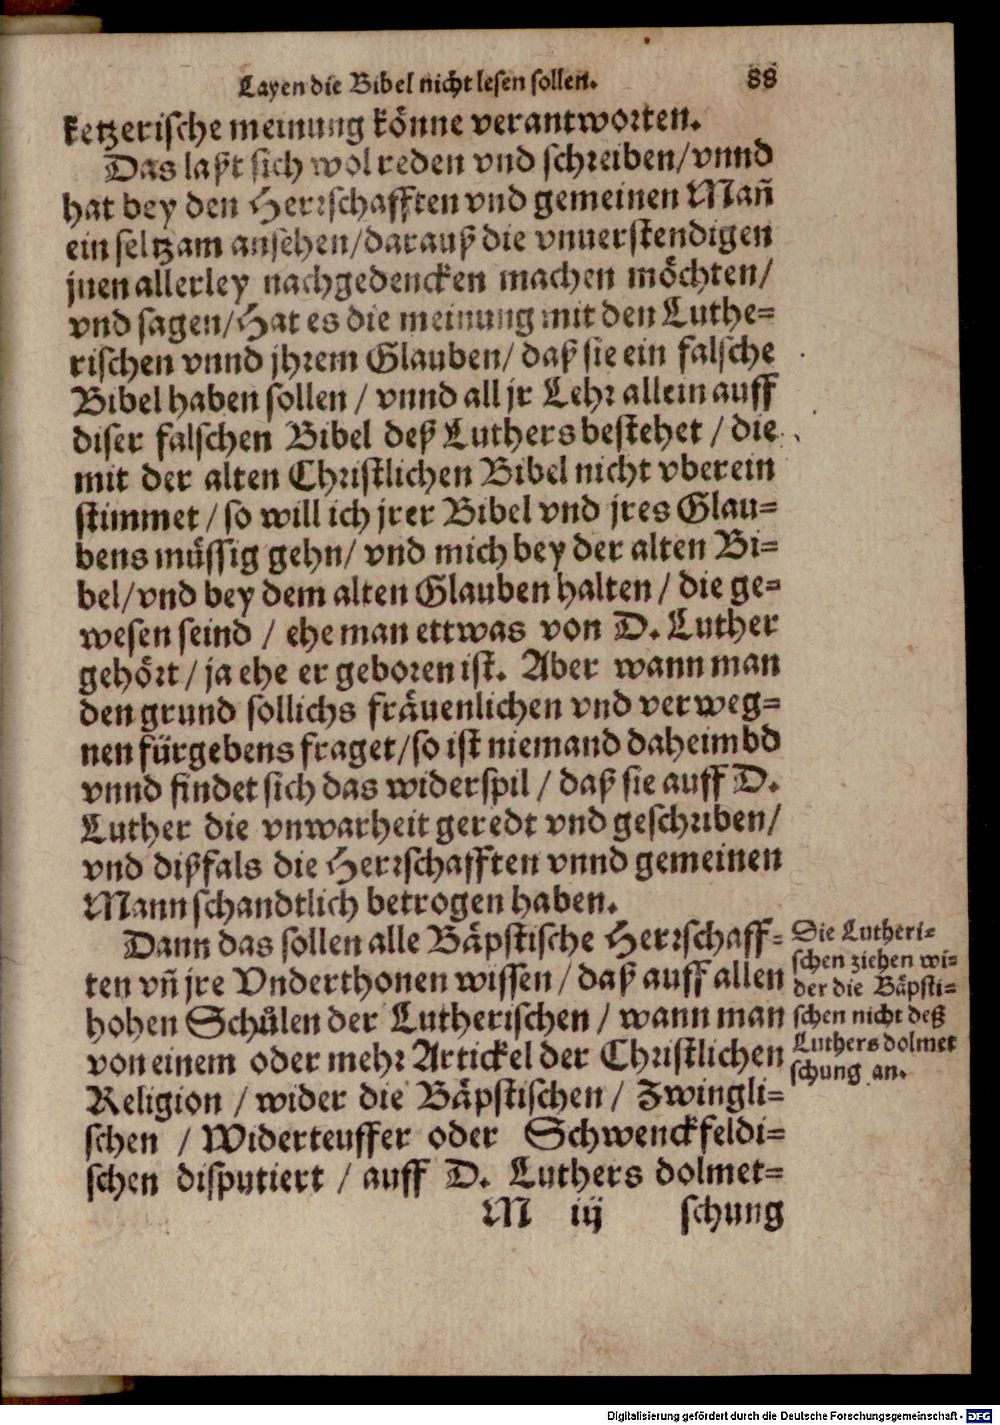 Layen die Bibel nicht lesen sollen. 88
ketzerische meinung könne verantworten.
Das laßt sich wol reden vnd schreiben/vnnd
hat bey den Herrschafften vnd gemeinen Mañ
ein seltzam ansehen/darauß die vnuerstendigen
jnen allerley nachgedencken machen möchten/
vnd sagen/Hat es die meinung mit den Luthe=
rischen vnnd jhrem Glauben/ daß sie ein falsche
Bibel haben sollen / vnnd all jr Lehr allein auff
diser falschen Bibel deß Luthers bestehet / die
mit der alten Christlichen Bibel nicht vberein
stimmet / so will ich jrer Bibel vnd jres Glau=
bens müssig gehn/ vnd mich bey der alten Bi=
bel/vnd bey dem alten Glauben halten / die ge=
wesen seind / ehe man ettwas von D. Luther
gehört / ja ehe er geboren ist. Aber wann man
den grund sollichs fräuenlichen vnd verweg=
nen fürgebens fraget/so ist niemand daheim vñ
vnnd findet sich das widerspil / daß sie auff D.
Luther die vnwarheit geredt vnd geschriben/
vnd dißfals die Herrschafften vnnd gemeinen
Mann schandtlich betrogen haben.
Dann das sollen alle Bäpstische Herrschaff=
ten vñ jre Vnderthonen wissen / daß auff allen
hohen Schůlen der Lutherischen / wann man
von einem oder mehr Artickel der Christlichen
Religion / wider die Bäpstischen / Zwingli=
schen / Widerteuffer oder Schwenckfeldi=
schen disputiert / auff D. Luthers dolmet=
M iij schung
Die Lutheri=
schen ziehen wi=
der die Bäpsti=
schen nicht deß
Luthers dolmet
schung an.
Digitalisierung gefördert durch die Deutsche Forschungsgemeinschaft - DFG